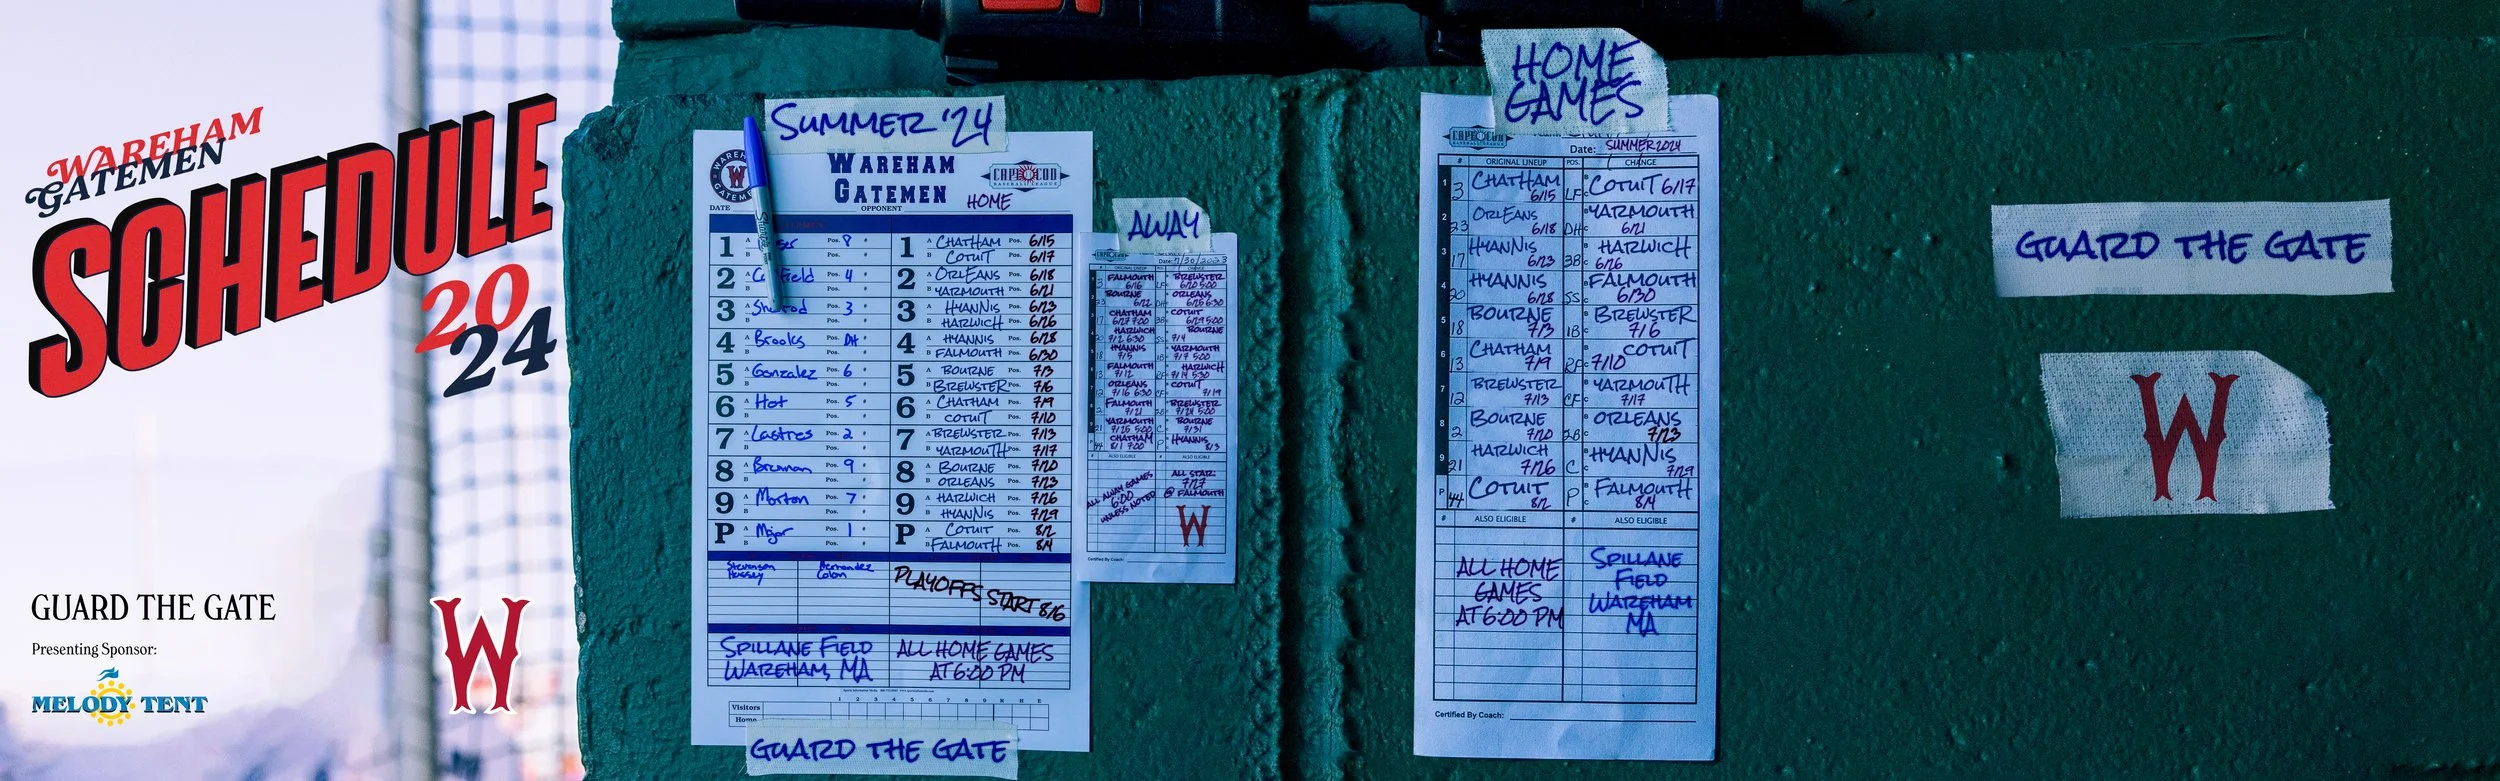 WAREHAM
GATEMEN
SCHEDULE
20
24
GUARD THE GATE
Presenting Sponsor:
MELODY TENT
W
SUMMER '24
WAREHAM
GATEMEN
CAPE COD
BASEBALL LEAGUE
HOME
DATE
OPPONENT
1 A Pos. 8 #
B Pos. #
2 A field Pos. 4 #
B Pos. #
3 A Pos. 3 #
B Pos. #
4 A Brooks Pos. DH #
B Pos. #
5 A Gonzalez Pos. 6 #
B Pos. #
6 A Hot Pos. 5 #
B Pos. #
7 A Lastres Pos. 2 #
B Pos. #
8 A Brennan Pos. 9 #
B Pos. #
9 A Morton Pos. 7 #
B Pos. #
P A Major Pos. 1 #
B Pos. #
1 A CHATHAM Pos. 6/15
B COTUIT Pos. 6/17
2 A ORLEANS Pos. 6/18
B YARMOUTH Pos. 6/21
3 A HYANNIS Pos. 6/23
B HARWICH Pos. 6/26
4 A HYANNIS Pos. 6/28
B FALMOUTH Pos. 6/30
5 A BOURNE Pos. 7/3
B BREWSTER Pos. 7/6
6 A CHATHAM Pos. 7/9
B COTUIT Pos. 7/10
7 A BREWSTER Pos. 7/13
B YARMOUTH Pos. 7/17
8 A BOURNE Pos. 7/20
B ORLEANS Pos. 7/23
9 A HARWICH Pos. 7/26
B HYANNIS Pos. 7/29
P A COTUIT Pos. 8/2
B FALMOUTH Pos. 8/4
Stevenson Hernandez
Hussey Colon
PLAYOFFS START 8/6
SPILLANE FIELD
WAREHAM, MA
ALL HOME GAMES
AT 6:00 PM
1 2 3 4 5 6 7 8 9 R H E
Visitors
Home
GUARD THE GATE
AWAY
Date: 7/30/2023
FALMOUTH BREWSTER
6/16 6/20 5:00
BOURNE ORLEANS
6/22 6/25 6:30
CHATHAM COTUIT
6/27 7:00 6/29 5:00
HARWICH BOURNE
7/2 6:30 7/4
HYANNIS YARMOUTH
7/5 7/7 5:00
FALMOUTH HARWICH
7/12 7/14 5:30
ORLEANS COTUIT
7/16 6:30 7/19
FALMOUTH BREWSTER
7/21 7/24 5:00
YARMOUTH BOURNE
7/25 5:00 7/31
CHATHAM HYANNIS
8/1 7:00 8/3
ALSO ELIGIBLE # ALSO ELIGIBLE
ALL AWAY GAMES
6:00
UNLESS NOTED
ALL STAR:
7/27
@ FALMOUTH
W
Certified By Coach:
HOME
GAMES
CAPE COD
BASEBALL LEAGUE
Date: SUMMER 2024
# ORIGINAL LINEUP POS. CHANGE
1 3 CHATHAM 6/15 LF COTUIT 6/17
2 23 ORLEANS 6/18 DH YARMOUTH 6/21
3 17 HYANNIS 6/23 3B HARWICH 6/26
4 20 HYANNIS 6/28 SS FALMOUTH 6/30
5 18 BOURNE 7/3 1B BREWSTER 7/6
6 13 CHATHAM 7/9 RF COTUIT 7/10
7 12 BREWSTER 7/13 CF YARMOUTH 7/17
8 2 BOURNE 7/20 2B ORLEANS 7/23
9 21 HARWICH 7/26 C HYANNIS 7/29
P 44 COTUIT 8/2 P FALMOUTH 8/4
# ALSO ELIGIBLE # ALSO ELIGIBLE
ALL HOME
GAMES
AT 6:00 PM
SPILLANE
FIELD
WAREHAM
MA
Certified By Coach:
GUARD THE GATE
W